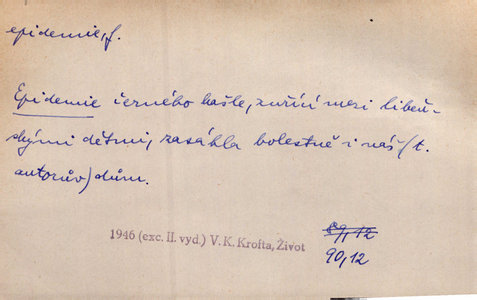 epidemie, f.
Epidemie černého kašle, zuřící mezi libeň-
skými dětmi, zasáhla bolestně i náš (t.
autorův) dům.
1946 (exc. II. vyd.) V. K. Krofta, Život
90,12